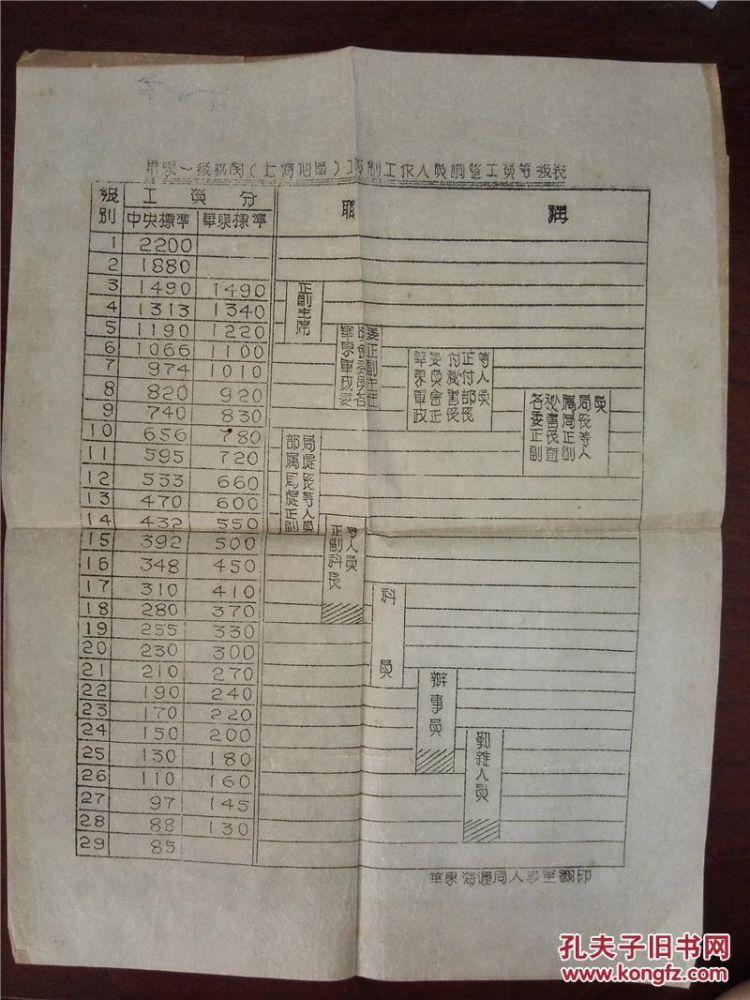 華東一級機関（上海地區）工資制工作人員調整工資等級表
級別 工資分 職 稱
中央標準 華東標準
1 2200
2 1880
3 1490 1490
4 1313 1340
5 1190 1220
6 1066 1100
7 974 1010
8 820 920
9 740 830
10 656 780
11 595 720
12 533 660
13 470 600
14 432 550
15 392 500
16 348 450
17 310 410
18 280 370
19 255 330
20 230 300
21 210 270
22 190 240
23 170 220
24 150 200
25 130 180
26 110 160
27 97 145
28 88 130
29 85
正副主席
華東軍政委
員會委員各
委正副主任
華東軍政
委員會正
付秘書長
正付部長
等人員
各委正副
秘書長直
屬局正副
局長等人
員
部屬局處正副
局處長等人員
正副科長
等人員
科員
辦事員
勤雜人員
華東海運局人事室翻印
孔夫子旧书网
www.kongfz.com